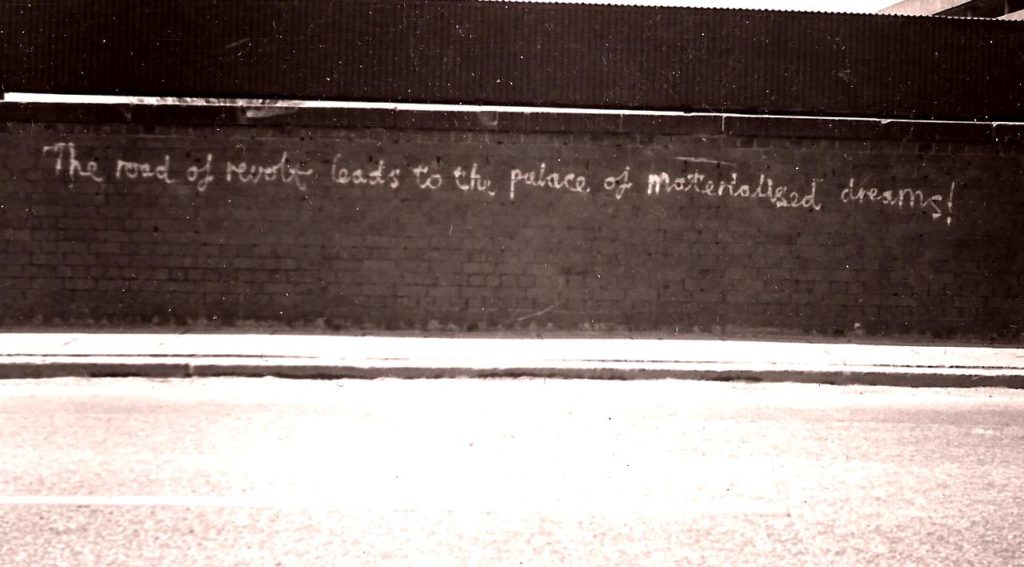 The road of revolt leads to the palace of materialised dreams!